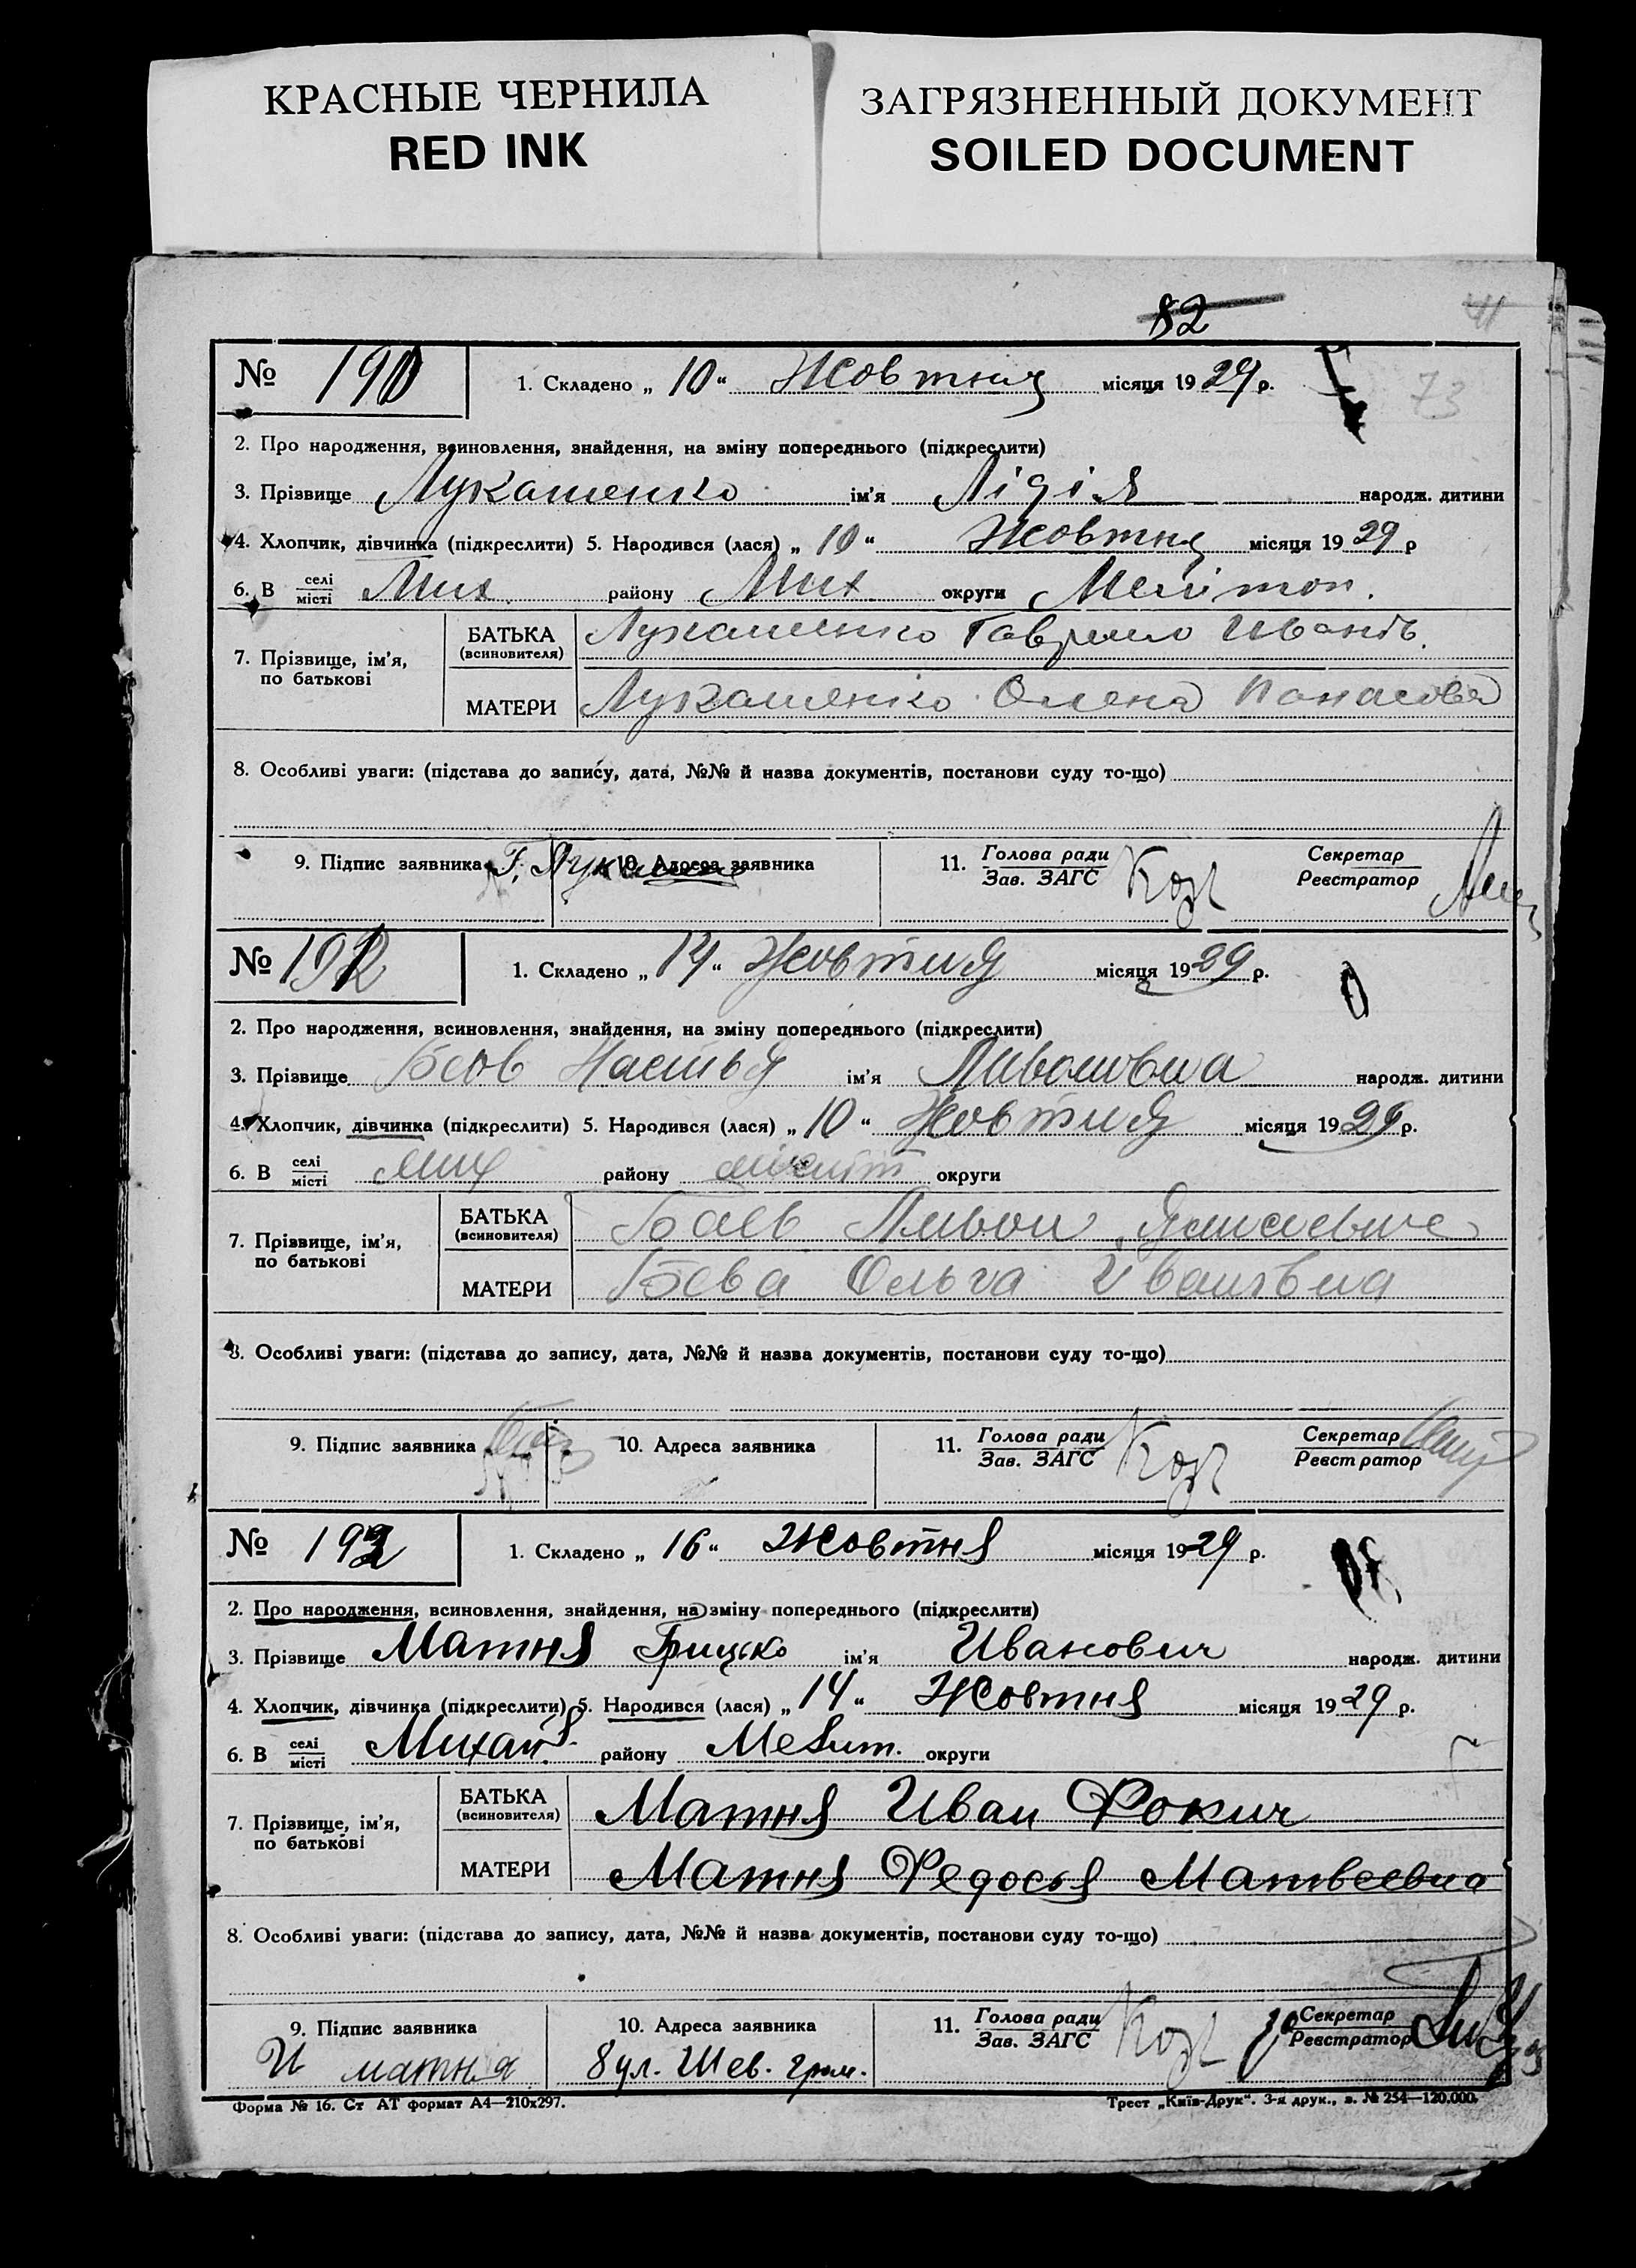 КРАСНЫЕ ЧЕРНИЛА
RED INK
ЗАГРЯЗНЕННЫЙ ДОКУМЕНТ
SOILED DOCUMENT
82
41
73
№ 190 1. Складено „ 10 “ Жовтня місяця 1929 р.
2. Про народження, всиновлення, знайдення, на зміну попереднього (підкреслити)
3. Прізвище Лукашенко ім'я Лідія народж. дитини
4. Хлопчик, дівчинка (підкреслити) 5. Народився (лася) „ 10 “ Жовтня місяця 1929 р
6. В селі місті Мих. району Мих. округи Мелітоп.
7. Прізвище, ім'я, по батькові
БАТЬКА (всиновителя) Лукашенко Гаврило
МАТЕРИ Лукашенко Олена Панасовна
8. Особливі уваги: (підстава до запису, дата, №№ й назва документів, постанови суду то-що)
9. Підпис заявника Г. 10. Адреса заявника 11. Голова ради Зав. ЗАГС Секретар Реєстратор
№ 1. Складено „ 14 “ Жовтня місяця 1929 р.
2. Про народження, всиновлення, знайдення, на зміну попереднього (підкреслити)
3. Прізвище Настья ім'я народж. дитини
4. Хлопчик, дівчинка (підкреслити) 5. Народився (лася) „ 10 “ Жовтня місяця 1929 р.
6. В селі місті Мих району округи
7. Прізвище, ім'я, по батькові
БАТЬКА (всиновителя)
МАТЕРИ Ольга
8. Особливі уваги: (підстава до запису, дата, №№ й назва документів, постанови суду то-що)
9. Підпис заявника 10. Адреса заявника 11. Голова ради Зав. ЗАГС Секретар Реєстратор
№ 192 1. Складено „ 16 “ Жовтня місяця 1929 р.
2. Про народження, всиновлення, знайдення, на зміну попереднього (підкреслити)
3. Прізвище Матня Грицко ім'я Иванович народж. дитини
4. Хлопчик, дівчинка (підкреслити) 5. Народився (лася) „ 14 “ Жовтня місяця 1929 р.
6. В селі місті району Мелит. округи
7. Прізвище, ім'я, по батькові
БАТЬКА (всиновителя) Матня Иван Фокич
МАТЕРИ Матня Федосья Матвеевна
8. Особливі уваги: (підстава до запису, дата, №№ й назва документів, постанови суду то-що)
9. Підпис заявника 10. Адреса заявника 11. Голова ради Зав. ЗАГС Секретар Реєстратор
И матня ул. Шев.
Форма № 16. Ст АТ формат А4—210х297. Трест „Київ-Друк“. 3-я друк., з. № 254—120.000.